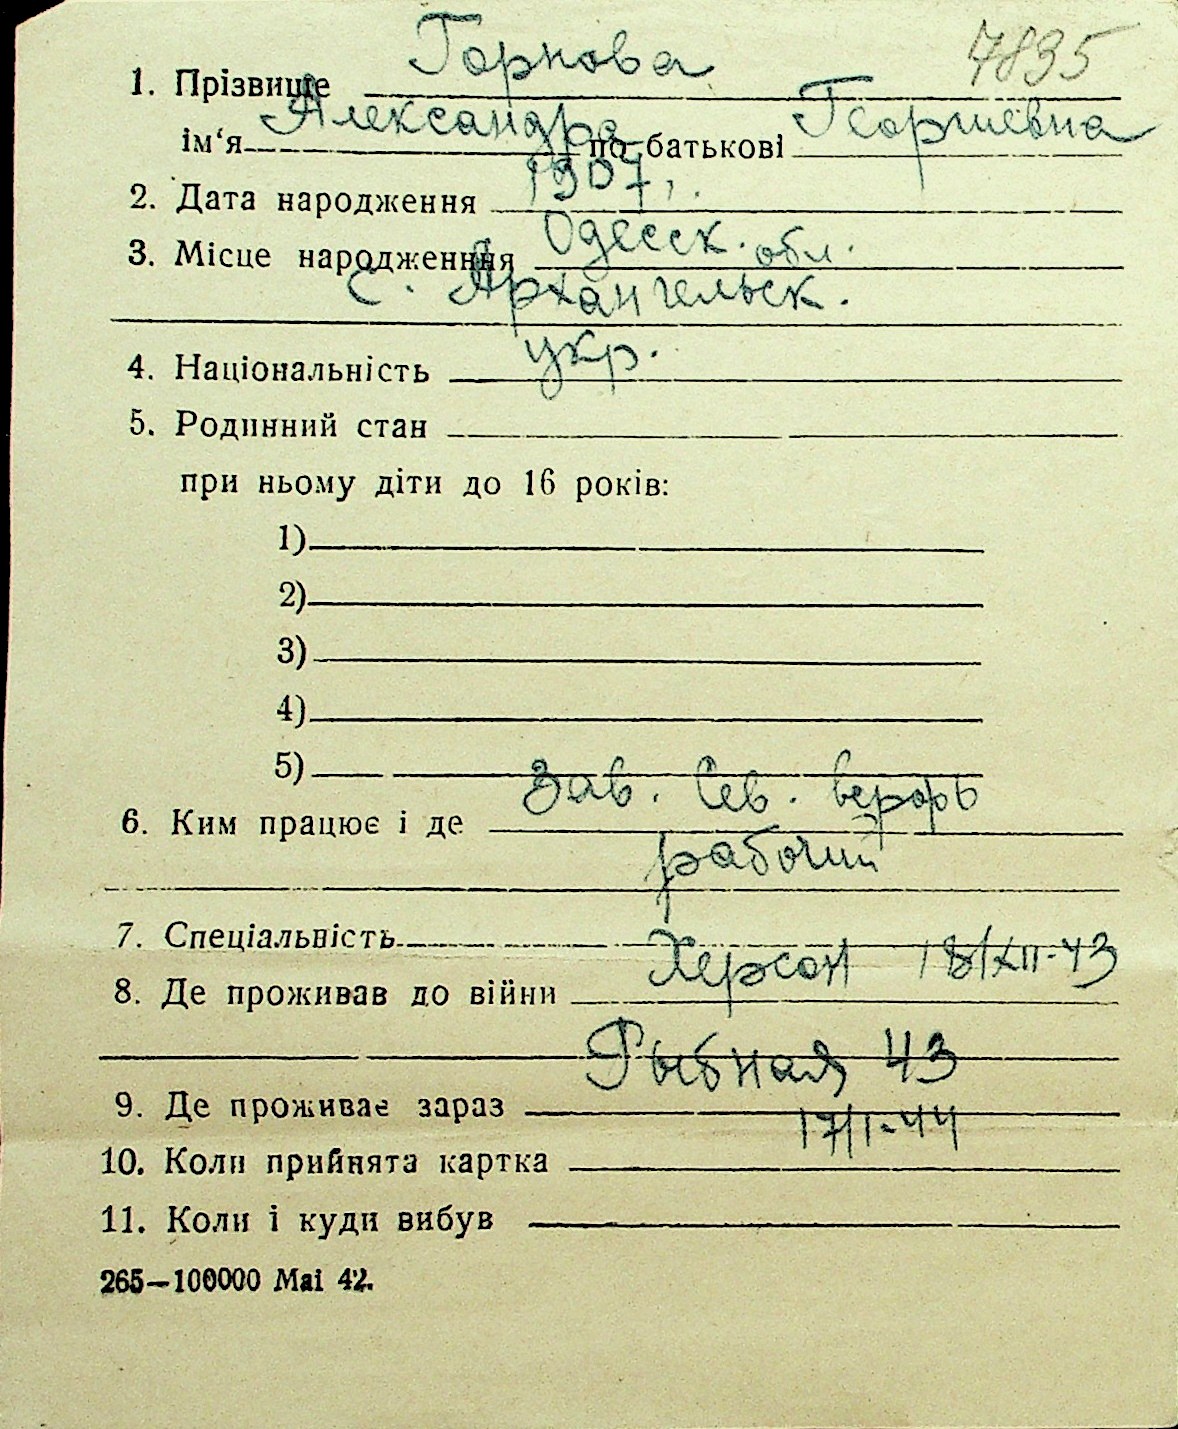 7835
1. Прізвище Горнова
ім‘я Александра по батькові Георгиевна
2. Дата народження 1907,
3. Місце народженння Одесск. обл.
с. Архангельск.
4. Національність укр.
5. Родинний стан
при ньому діти до 16 років:
1)
2)
3)
4)
5)
6. Ким працює і де Зав. Сев. верфь
рабочий
7. Спеціальність
8. Де проживав до війни Херсон 18/XII-43
9. Де проживає зараз Рыбная 43
10. Коли прийнята картка 17/I-44
11. Коли і куди вибув
265—100000 Mai 42.